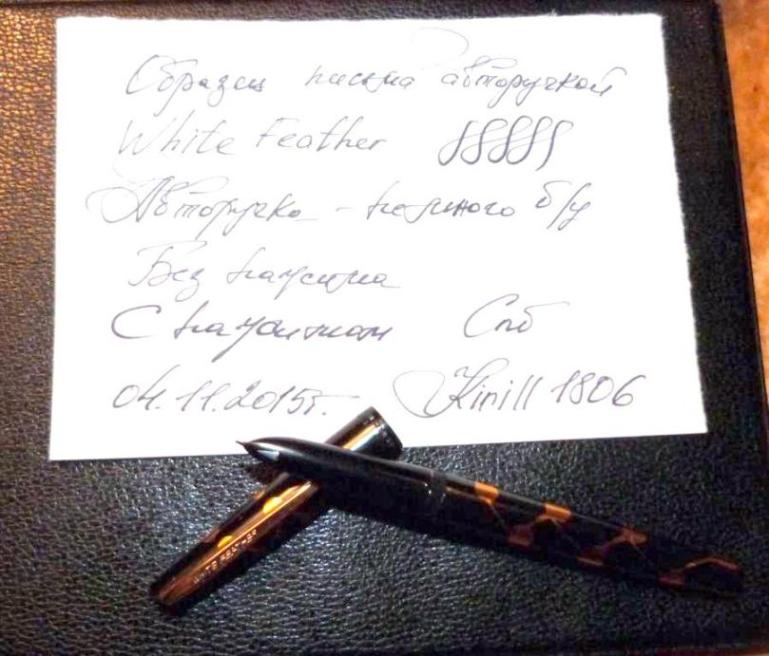 Образец письма авторучкой
White Feather
Авторучка - немного б/у
Без нажима
С нажимом Спб
04.11.2015г. Kirill 1806
WHITE FEATHER